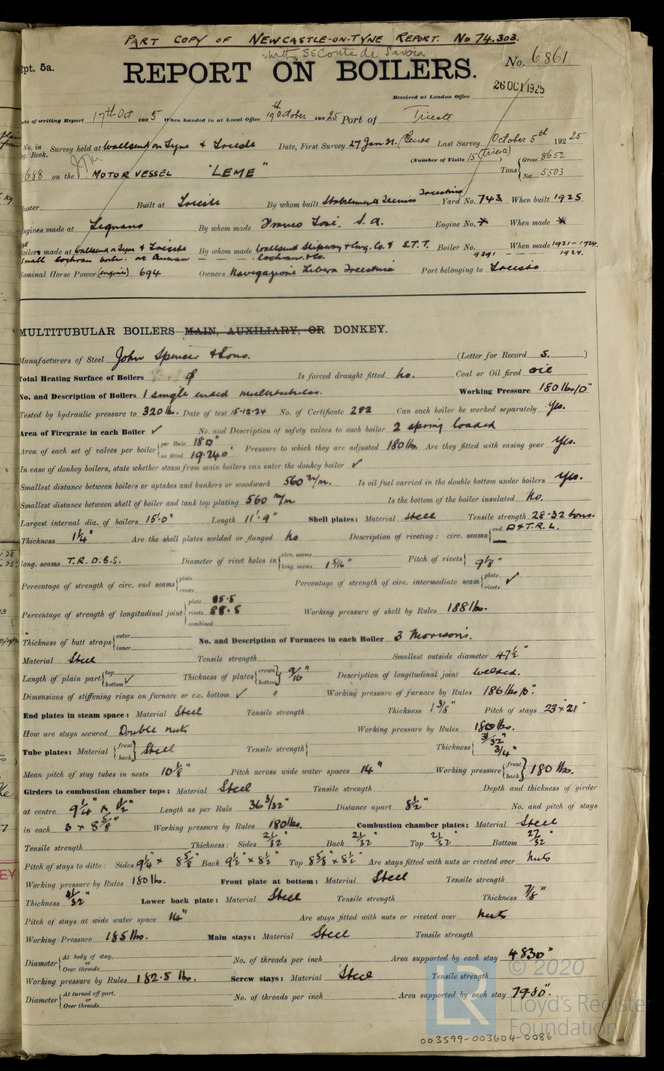 PART COPY OF NEWCASTLE-ON-TYNE REPORT. No 74.303.
SS Conte di Savoia
Rpt. 5a.
No. 6861
REPORT ON BOILERS.
26 OCT 1925
Received at London Office
Date of writing Report 17th Oct 1925 When handed in at Local Office 19th October 1925 Port of Trieste
No. in Reg. Book. Survey held at Wallsend on Tyne & Trieste Date, First Survey 27 Jan 21. Last Survey October 5th 1925
(Number of Visits 15 (Trieste))
688 on the MOTOR VESSEL "LEME" Tons { Gross 8652 Net 5503
Master Built at Trieste By whom built Stabilimento Tecnico Triestino Yard No. 743 When built 1925
Engines made at Legnano By whom made Franco Tosi, S.A. Engine No. * When made *
Boilers made at Wallsend on Tyne & Trieste By whom made Wallsend Slipway & Eng. Co. & S.T.T. Boiler No. When made 1921-1924.
Small Cochran boiler at Annan — Cochran & Co. 9291 — 1924.
Nominal Horse Power (engines) 694 Owners Navigazione Libera Triestina Port belonging to Trieste
MULTITUBULAR BOILERS MAIN, AUXILIARY, OR DONKEY.
Manufacturers of Steel John Spencer & Sons. (Letter for Record S.)
Total Heating Surface of Boilers Is forced draught fitted No. Coal or Oil fired oil
No. and Description of Boilers 1 single ended multitubular. Working Pressure 180 lbs/□"
Tested by hydraulic pressure to 320 lb. Date of test 15-12-24 No. of Certificate 282 Can each boiler be worked separately Yes.
Area of Firegrate in each Boiler ✓ No. and Description of safety valves to each boiler 2 spring loaded
Area of each set of valves per boiler { per Rule 18□" as fitted 19.24□" Pressure to which they are adjusted 180 lbs. Are they fitted with easing gear Yes.
In case of donkey boilers, state whether steam from main boilers can enter the donkey boiler ✓
Smallest distance between boilers or uptakes and bunkers or woodwork 560 m/m. Is oil fuel carried in the double bottom under boilers Yes.
Smallest distance between shell of boiler and tank top plating 560 m/m Is the bottom of the boiler insulated No.
Largest internal dia. of boilers 15'-0" Length 11'-9" Shell plates: Material Steel Tensile strength 28-32 tons.
Thickness 1¼" Are the shell plates welded or flanged No Description of riveting: circ. seams { end D.&T.R.L.
long. seams T.R.D.B.S. Diameter of rivet holes in { circ. seams long. seams 1 5/16" Pitch of rivets { 9⅛"
Percentage of strength of circ. end seams { plate rivets Percentage of strength of circ. intermediate seam { plate rivets ✓
Percentage of strength of longitudinal joint { plate 85.5 rivets 88.5 combined Working pressure of shell by Rules 188 lbs.
Thickness of butt straps { outer inner No. and Description of Furnaces in each Boiler 3 Morrisons.
Material Steel Tensile strength Smallest outside diameter 47½"
Length of plain part { top bottom ✓ Thickness of plates { crown bottom } 9/16" Description of longitudinal joint Welded.
Dimensions of stiffening rings on furnace or c.c. bottom ✓ Working pressure of furnace by Rules 186 lbs/□".
End plates in steam space: Material Steel Tensile strength Thickness 1 3/8" Pitch of stays 23" × 21"
How are stays secured Double nuts Working pressure by Rules 180 lbs.
Tube plates: Material { front back } Steel Tensile strength { Thickness { 31/32" 3/4"
Mean pitch of stay tubes in nests 10⅛" Pitch across wide water spaces 14" Working pressure { front back } 180 lbs.
Girders to combustion chamber tops: Material Steel Tensile strength Depth and thickness of girder
at centre 9¼" × 1½" Length as per Rule 36 3/32" Distance apart 8½" No. and pitch of stays
in each 3 × 8⅝" Working pressure by Rules 180 lbs. Combustion chamber plates: Material Steel
Tensile strength Thickness: Sides 21/32" Back 21/32" Top 21/32" Bottom 27/32"
Pitch of stays to ditto: Sides 9¼" × 8⅝" Back 9½" × 8½" Top 8⅝" × 8½" Are stays fitted with nuts or riveted over Nuts
Working pressure by Rules 180 lb. Front plate at bottom: Material Steel Tensile strength
Thickness 31/32" Lower back plate: Material Steel Tensile strength Thickness 7/8"
Pitch of stays at wide water space 14" Are stays fitted with nuts or riveted over Nuts
Working Pressure 185 lbs. Main stays: Material Steel Tensile strength
Diameter { At body of stay, or Over threads No. of threads per inch Area supported by each stay 483□"
Working pressure by Rules 182.5 lbs. Screw stays: Material Steel Tensile strength
Diameter { At turned off part, or Over threads No. of threads per inch Area supported by each stay 79.8□"
© 2020
LR Lloyd's Register Foundation
003599-003604-0086